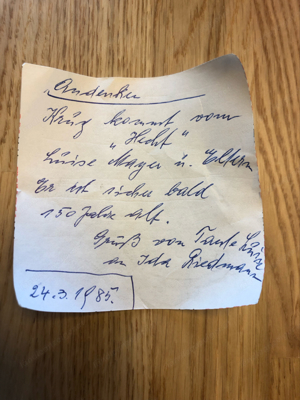 Andenken
Krug kommt vom
„Hecht"
Luise Mayer u. Eltern
Er ist sicher bald
150 Jahre alt.
Gruß von Tante Luise
an Ida Riedmann
24.3.1985.